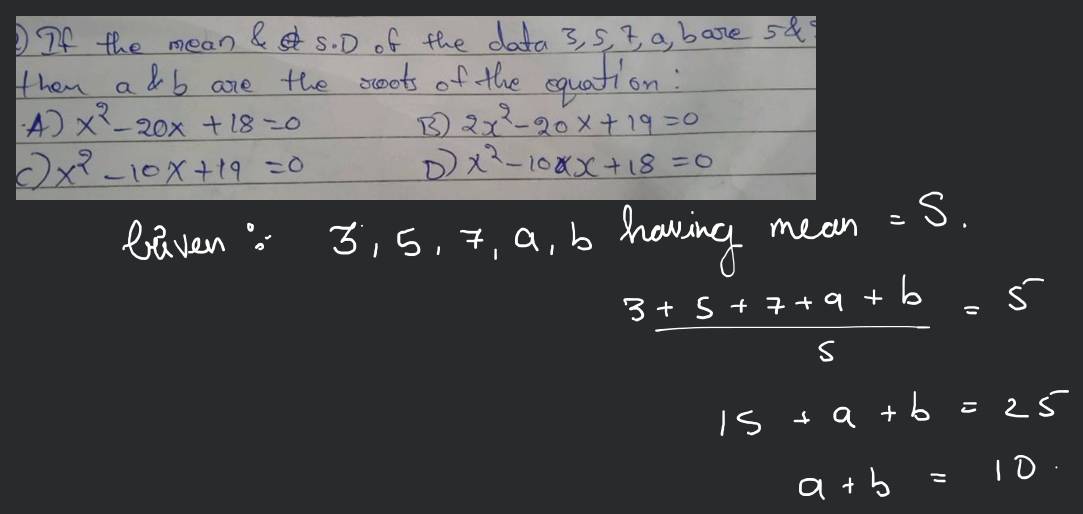 ) If the mean & S.D of the data 3, 5, 7, a, b are 5 &
then a & b are the roots of the equation:
A) x² - 20x + 18 = 0 B) 2x² - 20x + 19 = 0
C) x² - 10x + 19 = 0 D) x² - 10x + 18 = 0
Given : 3, 5, 7, a, b having mean = 5.
3 + 5 + 7 + a + b = 5
5
15 + a + b = 25
a + b = 10.